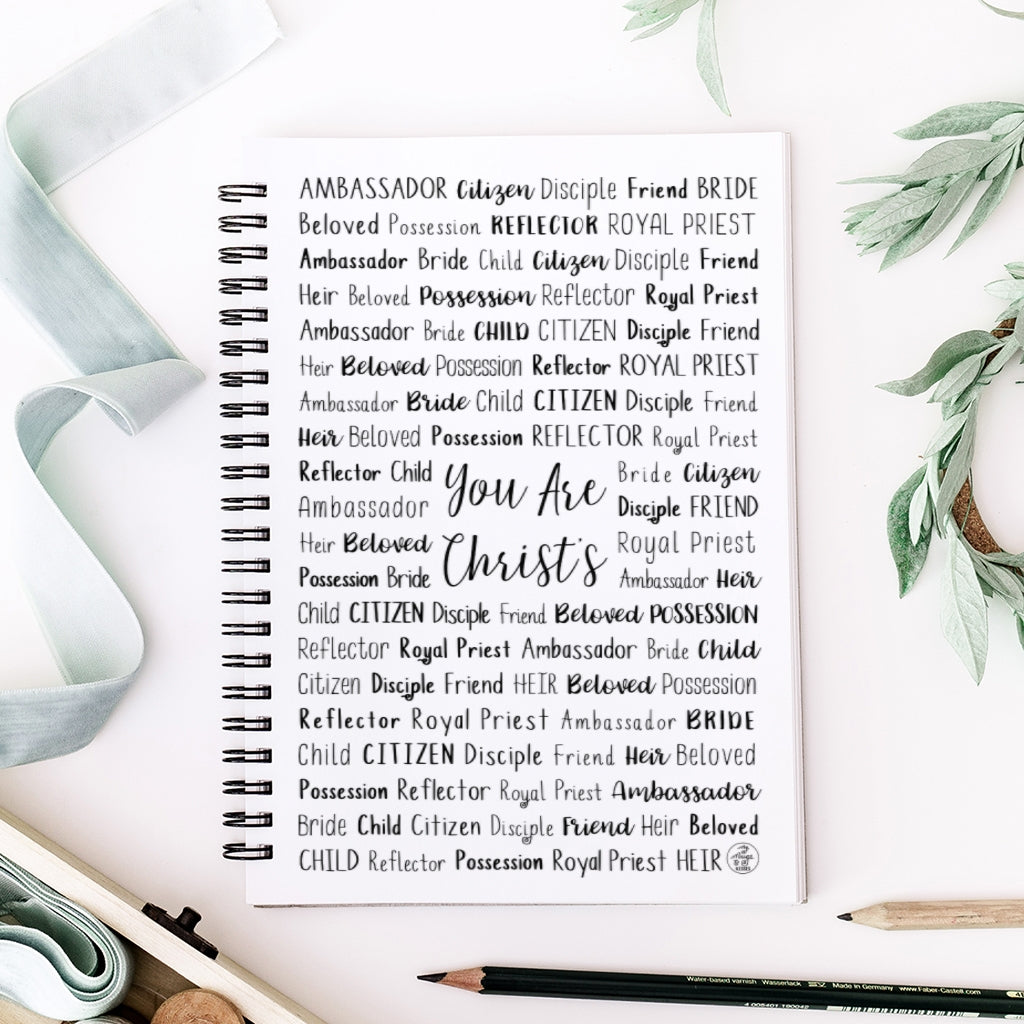 AMBASSADOR Citizen Disciple Friend BRIDE
Beloved Possession REFLECTOR ROYAL PRIEST
Ambassador Bride Child Citizen Disciple Friend
Heir Beloved Possession Reflector Royal Priest
Ambassador Bride CHILD CITIZEN Disciple Friend
Heir Beloved Possession Reflector ROYAL PRIEST
Ambassador Bride Child CITIZEN Disciple Friend
Heir Beloved Possession REFLECTOR Royal Priest
Reflector Child
Ambassador
Heir Beloved
Possession Bride
You Are
Christ's
Bride Citizen
Disciple FRIEND
Royal Priest
Ambassador Heir
Child CITIZEN Disciple Friend Beloved POSSESSION
Reflector Royal Priest Ambassador Bride Child
Citizen Disciple Friend HEIR Beloved Possession
Reflector Royal Priest Ambassador BRIDE
Child CITIZEN Disciple Friend Heir Beloved
Possession Reflector Royal Priest Ambassador
Bride Child Citizen Disciple Friend Heir Beloved
CHILD Reflector Possession Royal Priest HEIR
Water-based varnish Wasserlack Made in Germany www.Faber-Castell.com
4 005401 190042